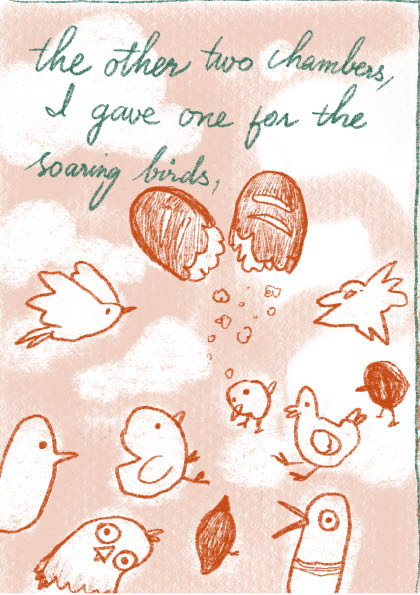 the other two chambers,
I gave one for the
soaring birds,